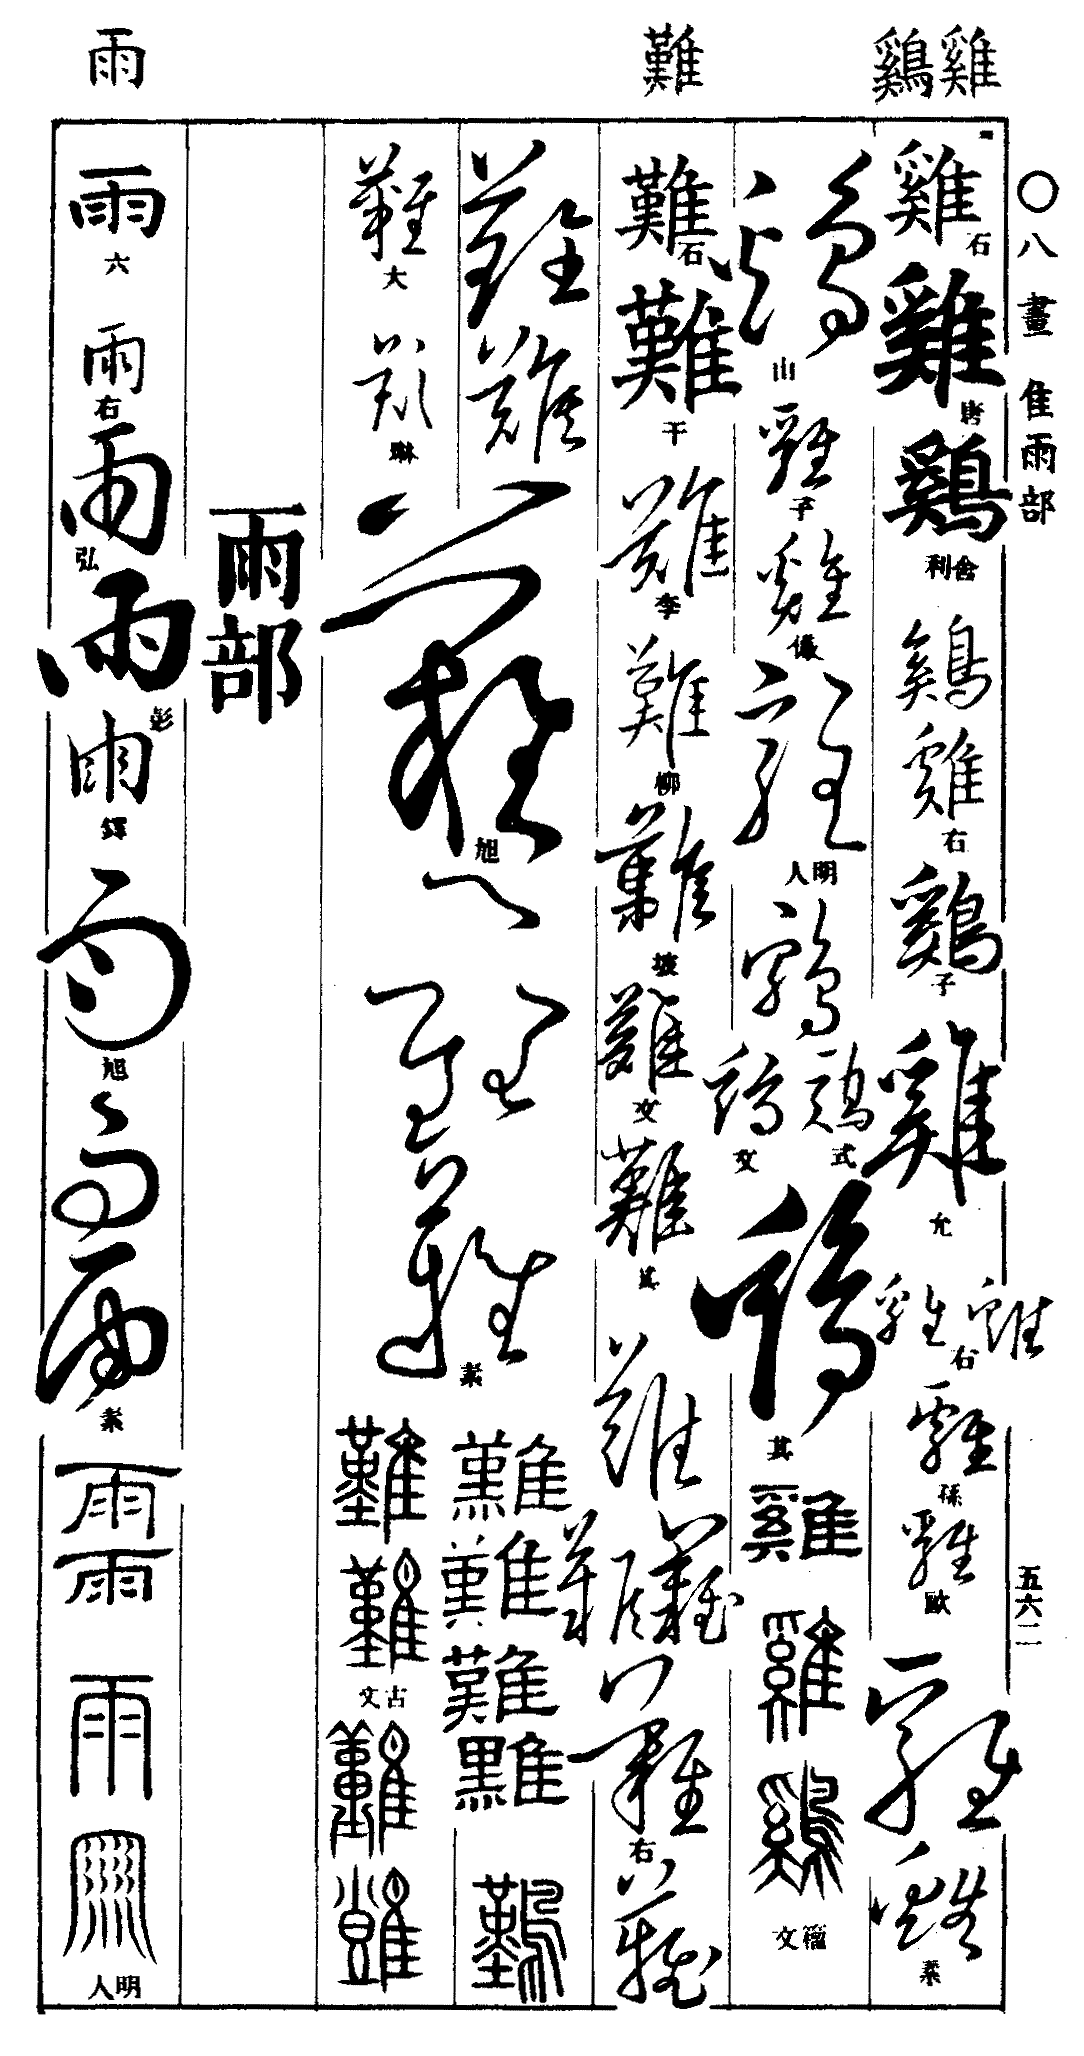 雞鷄
難
雨
〇八畫 隹雨部
五六二
雞 石
雞 唐
鷄 舍利
鷄
雞 右
鷄 子
雞 允
雞
雞 右
雞 孫
雞 歐
雞
雞 素
鷄 山
雞 子
雞 儀
雞 明人
鷄
鷄 式
鷄 文
鷄 其
雞
雞
鷄 籀文
難 石
難 千
難 李
難 柳
難 坡
難 文
難 其
難
難
難
難 右
難
難
難
難
難
難
難
難
難 大
難 琳
難 旭
難
難 素
難
難 古文
難
難
雨部
雨 六
雨 右
雨 弘
雨 彭
雨 鐸
雨 旭
雨
雨 素
雨
雨
雨
雨 明人